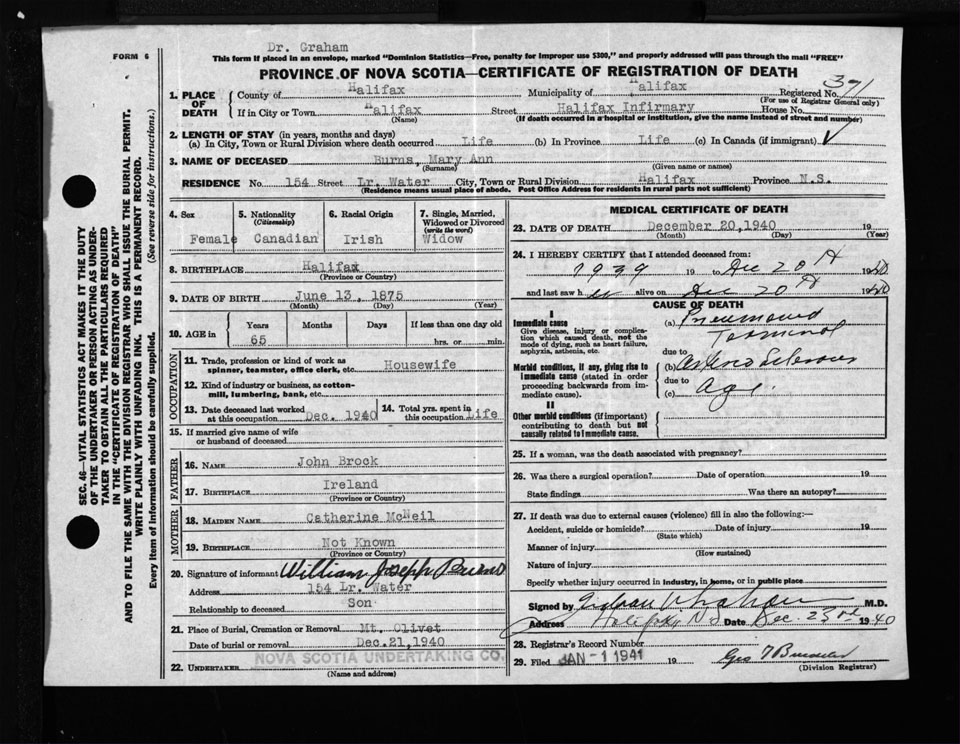 FORM 6
Dr. Graham
This form if placed in an envelope, marked "Dominion Statistics—Free, penalty for improper use $300," and properly addressed will pass through the mail "FREE"
PROVINCE OF NOVA SCOTIA—CERTIFICATE OF REGISTRATION OF DEATH
SEC. 46—VITAL STATISTICS ACT MAKES IT THE DUTY
OF THE UNDERTAKER OR PERSON ACTING AS UNDER-
TAKER TO OBTAIN ALL THE PARTICULARS REQUIRED
IN THE "CERTIFICATE OF REGISTRATION OF DEATH"
AND TO FILE THE SAME WITH THE DIVISION REGISTRAR WHO SHALL ISSUE THE BURIAL PERMIT.
WRITE PLAINLY WITH UNFADING INK. THIS IS A PERMANENT RECORD.
Every item of information should be carefully supplied. (See reverse side for instructions.)
1. PLACE OF DEATH County of Halifax Municipality of Halifax Registered No. 371
(For use of Registrar General only)
If in City or Town Halifax Street Halifax Infirmary House No.
(Name) (If death occurred in a hospital or institution, give name instead of street and number)
2. LENGTH OF STAY (in years, months and days)
(a) In City, Town or Rural Division where death occurred Life (b) In Province Life (c) In Canada (if immigrant) ✓
3. NAME OF DECEASED Burns, Mary Ann
(Surname) (Given name or names)
RESIDENCE No. 154 Street Lr. Water City, Town or Rural Division Halifax Province N.S.
(Residence means usual place of abode. Post Office Address for residents in rural parts not sufficient)
4. Sex Female
5. Nationality (Citizenship) Canadian
6. Racial Origin Irish
7. Single, Married, Widowed or Divorced (write the word) Widow
8. BIRTHPLACE Halifax
(Province or Country)
9. DATE OF BIRTH June 13, 1875
(Month) (Day) (Year)
10. AGE in Years Months Days If less than one day old
65 hrs. or min.
OCCUPATION
11. Trade, profession or kind of work as spinner, teamster, office clerk, etc. Housewife
12. Kind of industry or business, as cotton-mill, lumbering, bank, etc.
13. Date deceased last worked at this occupation Dec. 1940
14. Total yrs. spent in this occupation Life
15. If married give name of wife or husband of deceased
FATHER
16. NAME John Brock
17. BIRTHPLACE Ireland
(Province or Country)
MOTHER
18. MAIDEN NAME Catherine McNeil
19. BIRTHPLACE Not Known
(Province or Country)
20. Signature of informant William Joseph Burns
Address 154 Lr. Water
Relationship to deceased Son
21. Place of Burial, Cremation or Removal Mt. Olivet
Date of burial or removal Dec.21,1940
22. UNDERTAKER NOVA SCOTIA UNDERTAKING CO.
(Name and address)
MEDICAL CERTIFICATE OF DEATH
23. DATE OF DEATH December 20,1940 19
(Month) (Day) (Year)
24. I HEREBY CERTIFY that I attended deceased from:
1939 19 to Dec 20th 1940
and last saw her alive on Dec 20th 1940
CAUSE OF DEATH
I
Immediate cause
Give disease, injury or complication which caused death, not the mode of dying, such as heart failure, asphyxia, asthenia, etc.
(a) Pneumonia
Terminal
due to
Morbid conditions, if any, giving rise to immediate cause (stated in order proceeding backwards from immediate cause).
(b) Arterio Sclerosis
due to
(c) Age.
II
Other morbid conditions (if important) contributing to death but not causally related to immediate cause.
25. If a woman, was the death associated with pregnancy?
26. Was there a surgical operation? Date of operation 19
State findings Was there an autopsy?
27. If death was due to external causes (violence) fill in also the following:—
Accident, suicide or homicide? Date of injury 19
(State which)
Manner of injury
(How sustained)
Nature of injury
Specify whether injury occurred in industry, in home, or in public place
Signed by Graham M.D.
Address Halifax N S Date Dec. 23rd 1940
28. Registrar's Record Number
29. Filed JAN -1 1941 19
(Division Registrar)